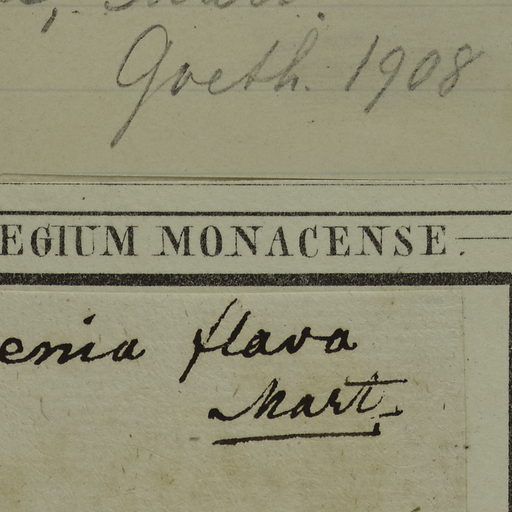 Goeth. 1908
EGIUM MONACENSE.
enia flava
Mart.